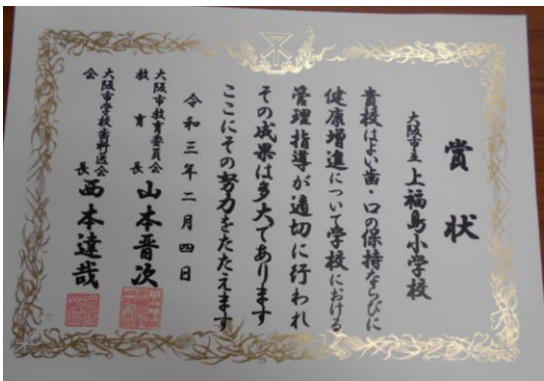 賞状
大阪市立 上福島小学校
貴校はよい歯・口の保持ならびに
健康増進について学校における
管理指導が適切に行われ
その成果は多大であります
ここにその努力をたたえます
令和三年二月四日
大阪市教育委員会
教育長 山本晋次
大阪市学校歯科医会
会長 西本達哉